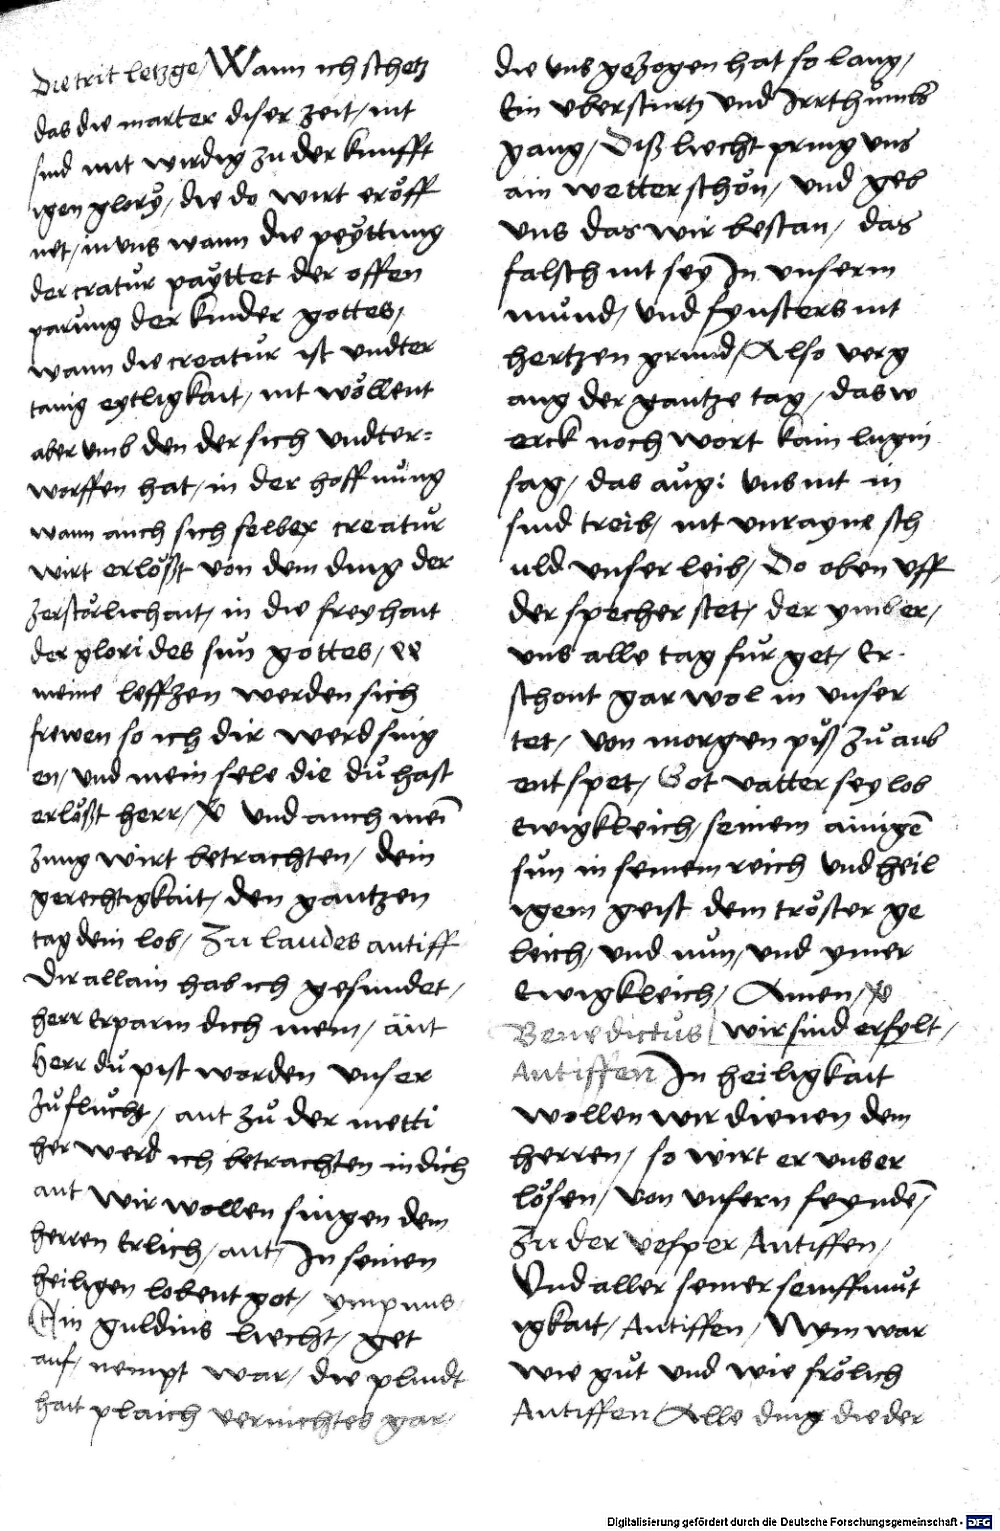 Die trit letzge / Wann ich schetz
das die marter diser zeit / nit
sind nit wirdig zu der kunfft
igen glory / die do wirt eröff
net / in uns wann die peyttung
der cratur payttet der offen
parung der kinder gottes /
wann die creatur ist undter
tanig eytligkait / nit wöllent
aber umb den der sich undter=
worffen hat / in der hoffnung
wann auch sich selber creatur
wirt erlößt von dem ding der
zerstörlichait / in die freyhait
der glori des sun gottes /
meine leffzen werden sich
frewen so ich dir werd sing
en / und mein sele die du hast
erlößt herr / und auch mei
zung wirt betrachten / dein
gerechtigkait / den gantzen
tag dein lob / Zu laudes antiff
Dir allain hab ich gesundet /
herr Erparm dich mein / ant
Herr du pist worden unser
Zuflucht / ant zu der metti
her werd ich betrachten in dich
ant Wir wollen singen dem
herren Erlich / ant / In seinen
heiligen lobent got / ympnus
Ein guldins liecht / get
auf / nempt war / die plindt
hait plaich vernichtes gar /
die uns gezogen hat so lang /
Ein ubersturtz und Irrthumbs
gang / Diß liecht pring uns
ain wetter schön / und geb
uns das wir bestan / das
falsch nit sey In unserm
mund / und fynsters nit
hertzen grund / Also verg
ang der gantze tag / das w
erck noch wort kain lugin
sag / das aug: uns nit in
sund treib / nit unrayne sch
uld unser leib / Do oben uff
der specher stet / der ymber /
uns alle tag fur get / Er
schont gar wol in unser
tet / von morgen piß zu aub
ent spet / Got vatter sey lob
Ewigkleich / seinem ainigen
sun in seinem reich und heil
igem geist dem tröster ge
leich / und nun / und ymer
Ewigkleich / Amen /
Benedictus wir sind erfylt /
Antiffen In heiligkait
wollen wir dienen dem
herren / so wirt er unser
lösen / von unsern feynden /
Zu der vesper Antiffen /
Und aller seiner senfftmut
igkait / Antiffen / Nym war
wie gut und wie frölich
Antiffen Alle ding die der
Digitalisierung gefördert durch die Deutsche Forschungsgemeinschaft - DFG